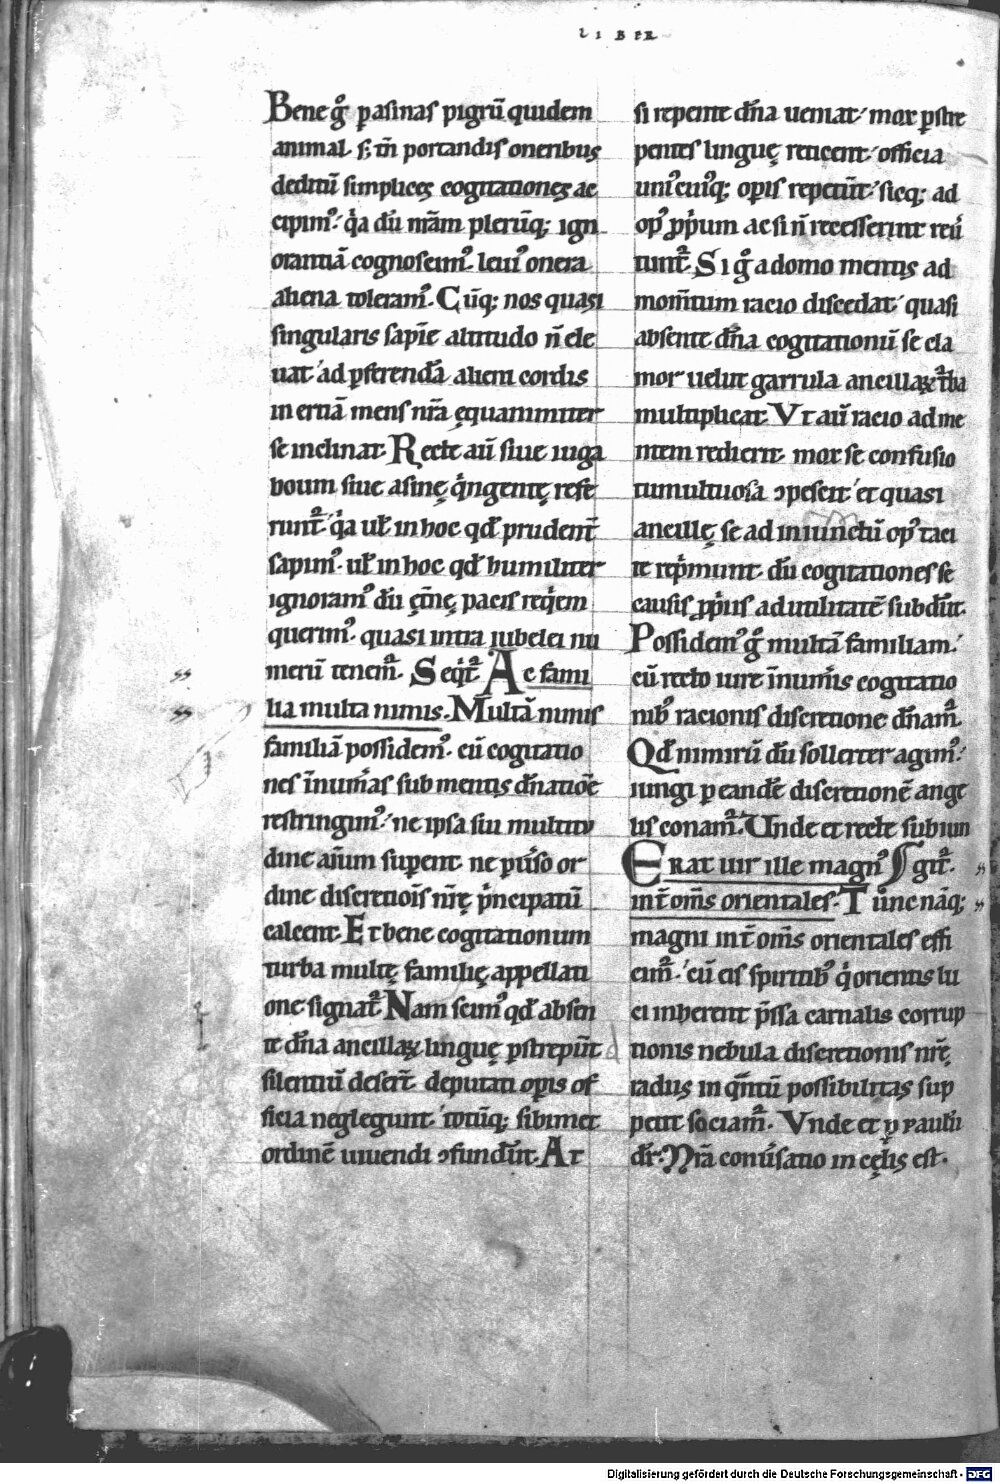 LIBER
Bene gͦ p asinas pigrū quidem
animal. s; tn̄ portandis oneribus
deditū simplices cogitationes ac
cipimꝰ. qͥa dū nr̄am plerūq; ign
orantiā cognoscimꝰ. leuiꝰ onera
aliena toleramꝰ. Cūq; nos quasi
singularis sapīe altitudo n̄ ele
uat ad ꝑferendā alieni cordis
inertiā mens nr̄a ęquanimiter
se inclinat. Recte aū siue iuga
boum siue asinę qͥngentę refe
runtᷣ. qͥa uł in hoc qd̄ prudent̄
sapimꝰ. uł in hoc qd̄ humiliter
ignoramꝰ dū ęt̄nę pacis reqͥem
querimꝰ. quasi intra iubelei nu
merū tenemᷣ. Seqͥtᷣ Ac fami
lia multa nimis. Multā nimis
familiā possidemꝰ. cū cogitatio
nes īnumͣas sub mentis dn̄atiōe
restringimꝰ. ne ipsa sui multitu
dine aīum suꝑent. ne ꝑuͥso or
dine discretiōis nr̄ę pͥncipatū
calcent. Et bene cogitationum
turba multę familię appellati
one signatᷣ. Nam scimꝰ qd̄ absen
te dn̄a ancillaꝝ linguę ꝑstrepūt
silentiū deser̄t. deputati oꝑis of
ficia neglegunt. totūq; sibimet
ordinē uiuendi ꝯfundūt. At
si repente dn̄a ueniat mox ꝑstre
pentes linguę reticent officia
uniꝰcuiꝰq; oꝑis repetūt sicq; ad
opꝰ ꝓpͥum ac si n̄ recesserint reuͥ
tuntᷣ. Si gͦ a domo mentis ad
mom̄tum racio discedat quasi
absente dn̄a cogitationū se cla
mor uelut garrula ancillaꝝ tᷣba
multiplicat. Vt aū racio ad me
ntem redierit. mox se confusio
tumultuosa ꝯpescit et quasi
ancillę se ad iniunctū opꝰ taci
te repͥmunt dū cogitationes se
causis ꝓpͥiis ad utilitatē subdūt.
Possidemꝰ gͦ multā familiam.
cū recto iure īnumͥis cogitatio
nibꝰ racionis discretione dn̄amᷣ.
Qd̄ nimirū dū sollerter agimꝰ.
iungi p eandē discretionē ange
lis conamᷣ. Unde et recte subiun
Erat uir ille magnꝰ ſgitᷣ.
int̄ om̄s orientales. Tūnc nāq;
magni int̄ om̄s orientales effi
cimᷣ. cū eis spiritibꝰ qͥ orientis lu
ci inherent p̄ssa carnalis corrup
tionis nebula discretionis nr̄ę
radiis in qn̄tū possibilitas sup
petit sociamᷣ. Vnde et ꝑ paulū
dr̄. Nr̄a conuͥsatio in cęlis est.
Digitalisierung gefördert durch die Deutsche Forschungsgemeinschaft - DFG